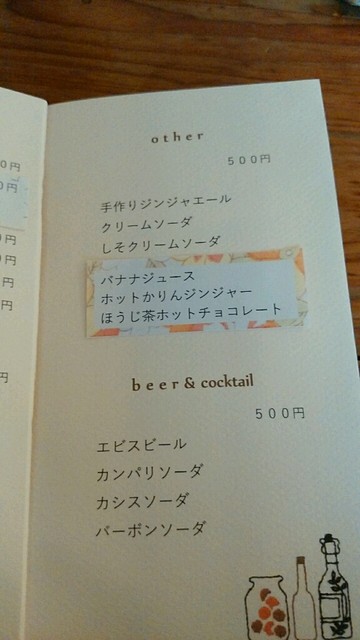 other
500円
手作りジンジャエール
クリームソーダ
しそクリームソーダ
バナナジュース
ホットかりんジンジャー
ほうじ茶ホットチョコレート
beer & cocktail
500円
エビスビール
カンパリソーダ
カシスソーダ
バーボンソーダ
0円
0円
0円
0円
円
円
円